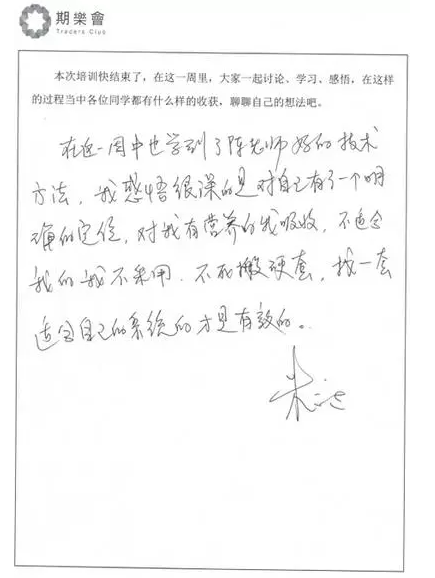 期樂會
Traders Club
本次培训快结束了，在这一周里，大家一起讨论、学习、感悟，在这样
的过程当中各位同学都有什么样的收获，聊聊自己的想法吧。
在这一周中也学到了陈老师好的技术
方法，我感悟很深的是对自己有了一个明
确的定位，对我有营养的我吸收，不适合
我的我不采用，不死搬硬套，找一套
适合自己的系统的才是有效的。